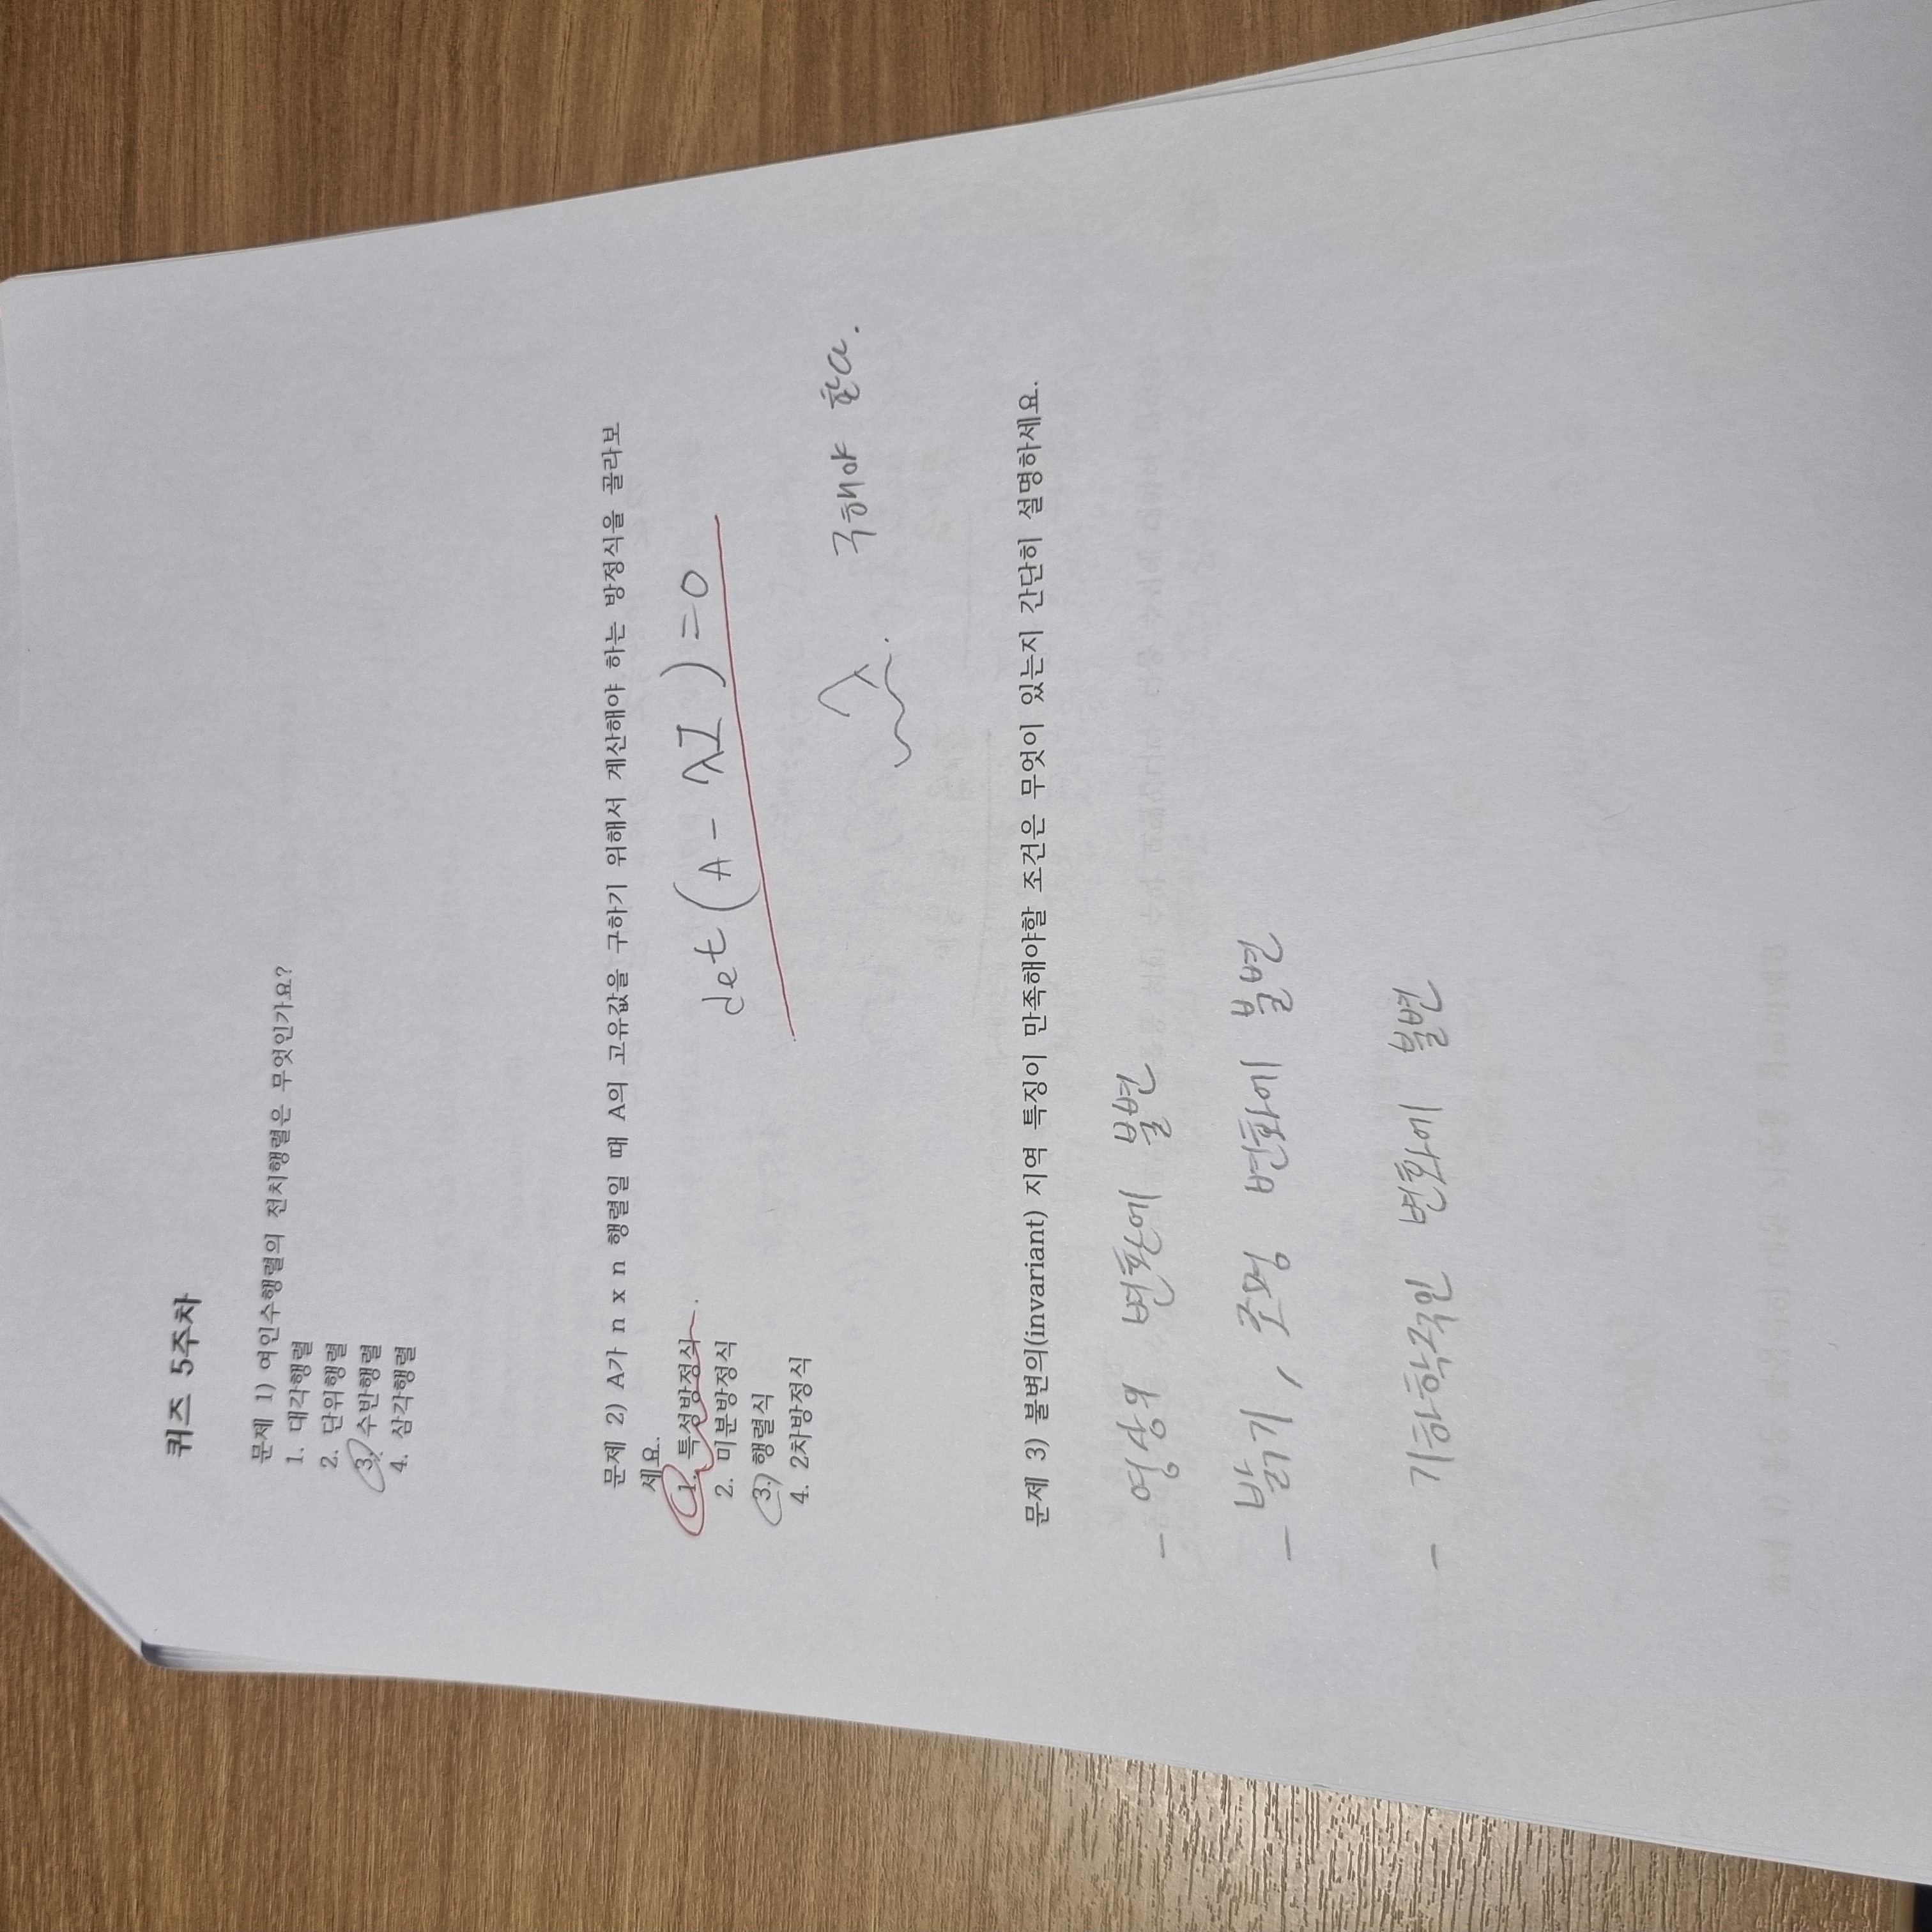 퀴즈 5주차
문제 1) 여인수행렬의 전치행렬은 무엇인가요?
1. 대각행렬
2. 단위행렬
3. 수반행렬
4. 삼각행렬
문제 2) A가 n x n 행렬일 때 A의 고유값을 구하기 위해서 계산해야 하는 방정식을 골라보
세요.
1. 특성방정식
2. 미분방정식
3. 행렬식
4. 2차방정식
det(A - λI) = 0
λ. 구해야 한다.
문제 3) 불변의(invariant) 지역 특징이 만족해야할 조건은 무엇이 있는지 간단히 설명하세요.
- 영상의 변환에 불변
- 밝기, 조명 변화에 불변
- 기하학적인 변화에 불변